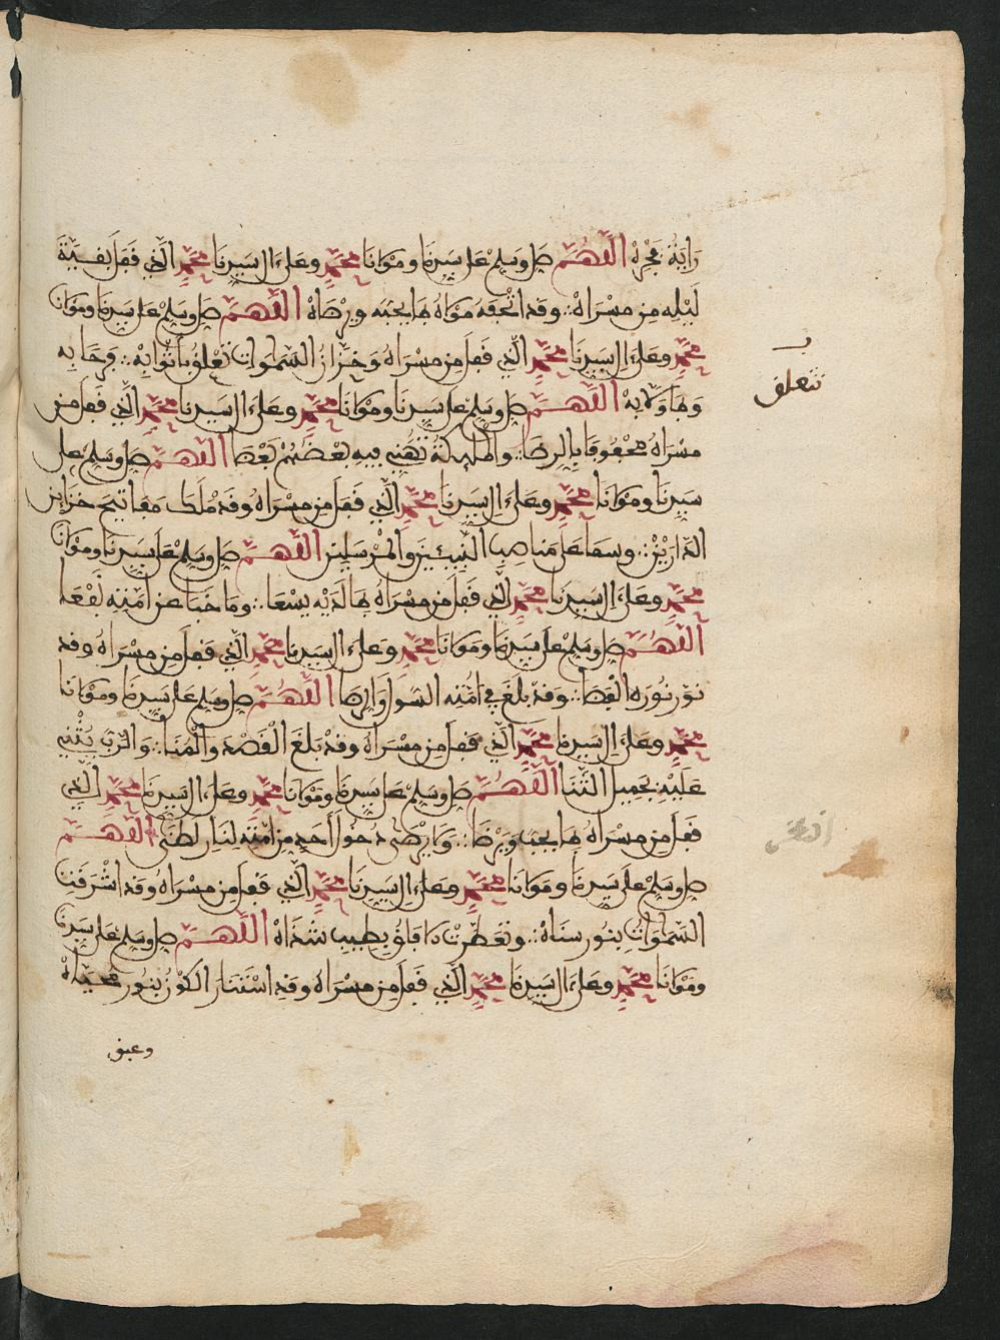 راية فخره اللهم صل وسلم على سيدنا ومولانا محمد وعلى ءال سيدنا محمد الذي قفل بقية
ليله من مسراه وقد اتحفه مولاه بما يحبه ويرضاه اللهم صل وسلم على سيدنا ومولانا
محمد وعلى ءال سيدنا محمد الذي قفل من مسراه وخزان السموات تعلق باثوابه فرحا به
وبما ولا به اللهم صل وسلم على سيدنا ومولانا محمد وعلى ءال سيدنا محمد الذي قفل من
مسراه محفوفا بالرضا والمليكة تهني فيه بعضهم بعضا اللهم صل وسلم على
سيدنا ومولانا محمد وعلى ءال سيدنا محمد الذي قفل من مسراه وقد ملك مفاتيح خزاين
الدارين وسما على مناصب النبيين والمرسلين اللهم صل وسلم على سيدنا ومولانا
محمد وعلى ءال سيدنا محمد الذي قفل من مسراه بما لديه يسعا وما خبا عن امته نفعا
اللهم صل وسلم على سيدنا ومولانا محمد وعلى ءال سيدنا محمد الذي قفل من مسراه وقد
نور نوره الفضا وقد بلغ في امته السول والرضا اللهم صل وسلم على سيدنا ومولانا
محمد وعلى ءال سيدنا محمد الذي قفل من مسراه وقد بلغ القصد والمنا والرب يثني
عليه بجميل الثنا اللهم صل وسلم على سيدنا ومولانا محمد وعلى ءال سيدنا محمد الذي
قفل من مسراه بما يحبه ويرضا ولا يرضى دخول احد من امته لنار لظى اللهم
صل وسلم على سيدنا ومولانا محمد وعلى ءال سيدنا محمد الذي قفل من مسراه وقد اشرقت
السموات بنور سناه وتعطرت الافاق بطيب شذاه اللهم صل وسلم على سيدنا
ومولانا محمد وعلى ءال سيدنا محمد الذي قفل من مسراه وقد استنار الكون بنور محياه
وعبق
تتعلق